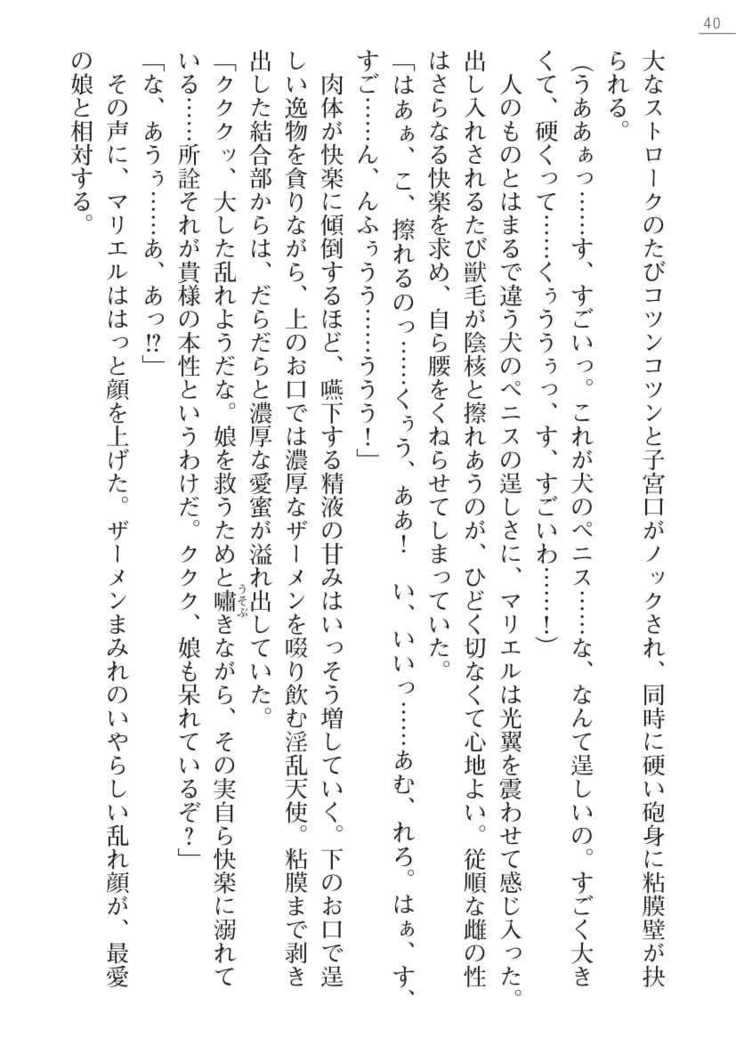 40
大なストロークのたびコツンコツンと子宮口がノックされ、同時に硬い砲身に粘膜壁が抉
られる。
（うああぁっ……す、すごいっ。これが犬のペニス……な、なんて逞しいの。すごく大き
くて、硬くって……くぅううぅっ、す、すごいわ……！）
人のものとはまるで違う犬のペニスの逞しさに、マリエルは光翼を震わせて感じ入った。
出し入れされるたび獣毛が陰核と擦れあうのが、ひどく切なくて心地よい。従順な雌の性
はさらなる快楽を求め、自ら腰をくねらせてしまっていた。
「はあぁ、こ、擦れるのっ……くぅう、ああ！　い、いいっ……あむ、れろ。はぁ、す、
すご……ん、んふぅうう……ううう！」
肉体が快楽に傾倒するほど、嚥下する精液の甘みはいっそう増していく。下のお口で逞
しい逸物を貪りながら、上のお口では濃厚なザーメンを啜り飲む淫乱天使。粘膜まで剥き
出した結合部からは、だらだらと濃厚な愛蜜が溢れ出していた。
「ククッ、大した乱れようだな。娘を救うためと嘯きながら、その実自ら快楽に溺れて
うそぶ
いる……所詮それが貴様の本性というわけだ。ククク、娘も呆れているぞ？」
「な、あうぅ……あ、あっ!?」
その声に、マリエルははっと顔を上げた。ザーメンまみれのいやらしい乱れ顔が、最愛
の娘と相対する。